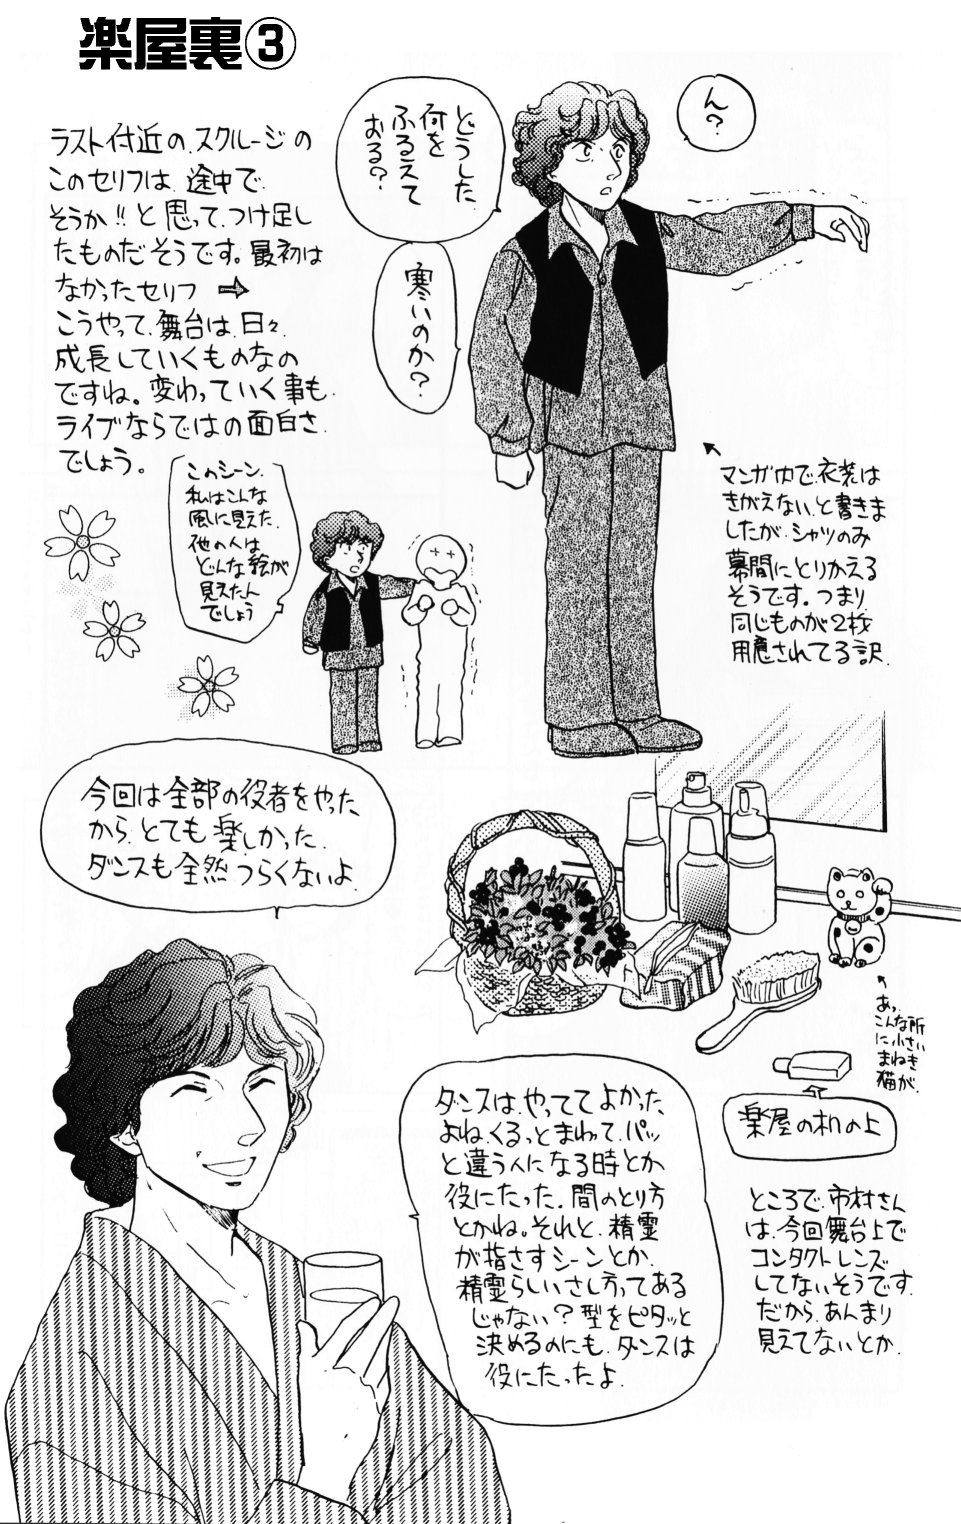 楽屋裏③
ん?
どうした
何を
ふるえて
おる?
寒いのか?
ラスト付近の、スクルージの
このセリフは、途中で、
そうか!!と思って、つけ足し
たものだそうです。最初は
なかったセリフ ⇨
こうやって、舞台は、日々、
成長していくものなの
ですね。変わっていく事も、
ライブならではの面白さ、
でしょう。
このシーン、
私はこんな
風に見えた、
他の人は
どんな絵が
見えたん
でしょう
マンガ内で、衣装は
きがえない、と書きま
したが、シャツのみ
幕間にとりかえる
そうです。つまり、
同じものが2枚
用意されてる訳、
今回は全部の役者をやった
から、とても楽しかった、
ダンスも全然つらくないよ、
あっ、
こんな所
に小さい
まねき
猫が、
楽屋の机の上
ダンスは、やっててよかった
よね、くるっとまわって、パッ
と違う人になる時とか
役にたった、間のとり方
とかね。それと、精霊
が指さすシーンとか、
精霊らしいさし方ってある
じゃない?型をピタッと
決めるのにも、ダンスは
役にたったよ、
ところで、市村さん
は、今回舞台上で
コンタクトレンズ
してないそうです、
だから、あんまり
見えてないとか、